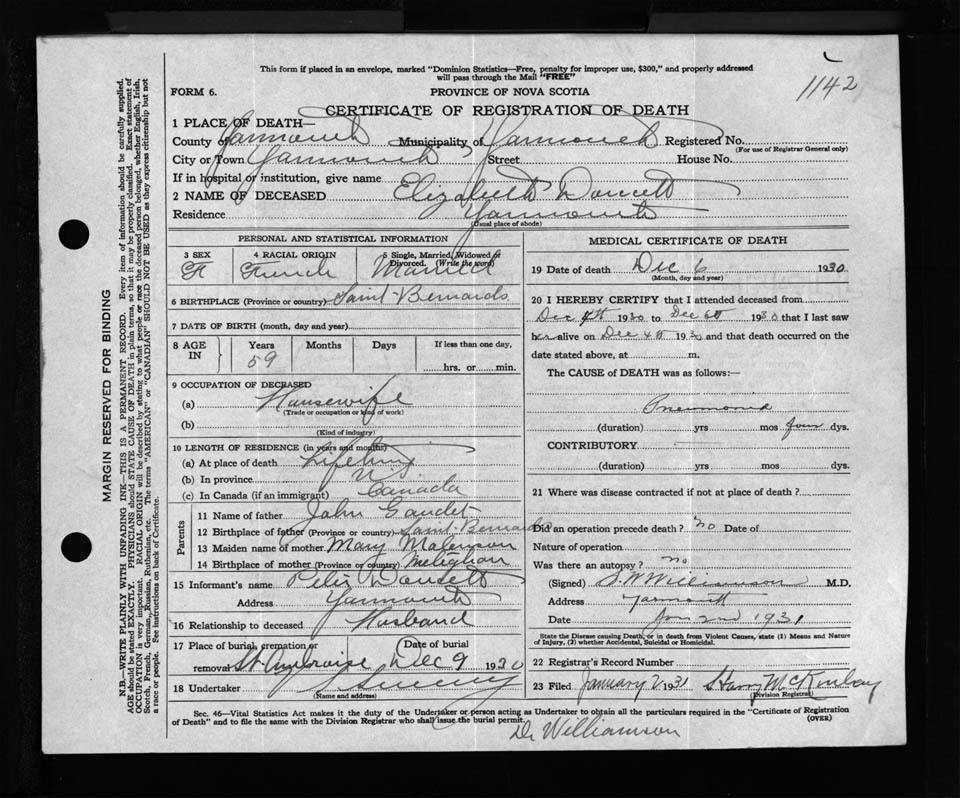 This form if placed in an envelope, marked "Dominion Statistics—Free, penalty for improper use, $300," and properly addressed
will pass through the Mail "FREE"
1142
FORM 6.
PROVINCE OF NOVA SCOTIA
CERTIFICATE OF REGISTRATION OF DEATH
1 PLACE OF DEATH—
County of Yarmouth Municipality of Yarmouth Registered No.
(For use of Registrar General only)
City or Town Yarmouth Street House No.
If in hospital or institution, give name
2 NAME OF DECEASED Elizabeth Doucett
Residence Yarmouth
(Usual place of abode)
PERSONAL AND STATISTICAL INFORMATION
3 SEX 4 RACIAL ORIGIN 5 Single, Married, Widowed or
Divorced. (Write the word)
F French Married
6 BIRTHPLACE (Province or country) Saint-Bernards
7 DATE OF BIRTH (month, day and year)
8 AGE IN Years Months Days If less than one day,
59 hrs. or min.
9 OCCUPATION OF DECEASED
(a) Housewife
(Trade or occupation or kind of work)
(b)
(Kind of industry)
10 LENGTH OF RESIDENCE (in years and months)
(a) At place of death Lifetime
(b) In province N.S
(c) In Canada (if an immigrant) Canada
Parents
11 Name of father John Gaudet
12 Birthplace of father (Province or country) Saint-Bernards
13 Maiden name of mother Mary
14 Birthplace of mother (Province or country) Meteghan
15 Informant's name Peter Doucett
Address Yarmouth
16 Relationship to deceased Husband
17 Place of burial, cremation or Date of burial
removal St. Ambroise Dec 9 1930
18 Undertaker Sweeny
(Name and address)
MEDICAL CERTIFICATE OF DEATH
19 Date of death Dec 6 1930
(Month, day and year)
20 I HEREBY CERTIFY that I attended deceased from
Dec 4th 1930 to Dec 6th 1930 that I last saw
her alive on Dec 4th 1930 and that death occurred on the
date stated above, at m.
The CAUSE of DEATH was as follows:—
Pneumonia
(duration) yrs mos four dys.
CONTRIBUTORY
(duration) yrs mos dys.
21 Where was disease contracted if not at place of death?
Did an operation precede death? no Date of
Nature of operation
Was there an autopsy? no
(Signed) Williamson M.D.
Address Yarmouth
Date Jan 2nd 1931
State the Disease causing Death, or in death from Violent Causes, state (1) Means and Nature
of Injury, (2) whether Accidental, Suicidal or Homicidal.
22 Registrar's Record Number
23 Filed January 2 1931 Harry McKinlay
(Division Registrar)
Sec. 46—Vital Statistics Act makes it the duty of the Undertaker or person acting as Undertaker to obtain all the particulars required in the "Certificate of Registration
of Death" and to file the same with the Division Registrar who shall issue the burial permit.
(OVER)
Dr Williamson
MARGIN RESERVED FOR BINDING
N.B.—WRITE PLAINLY WITH UNFADING INK—THIS IS A PERMANENT RECORD. Every item of information should be carefully supplied.
AGE should be stated EXACTLY. PHYSICIANS should STATE CAUSE OF DEATH in plain terms, that it may be properly classified. Exact statement of
OCCUPATION is very important. RACIAL ORIGIN will be described by stating to what people or race the deceased person belonged, whether English, Irish,
Scotch, French, German, Russian, Ruthenian, etc. The terms "AMERICAN" or "CANADIAN" SHOULD NOT BE USED as they express citizenship but not
a race or people. See instructions on back of Certificate.